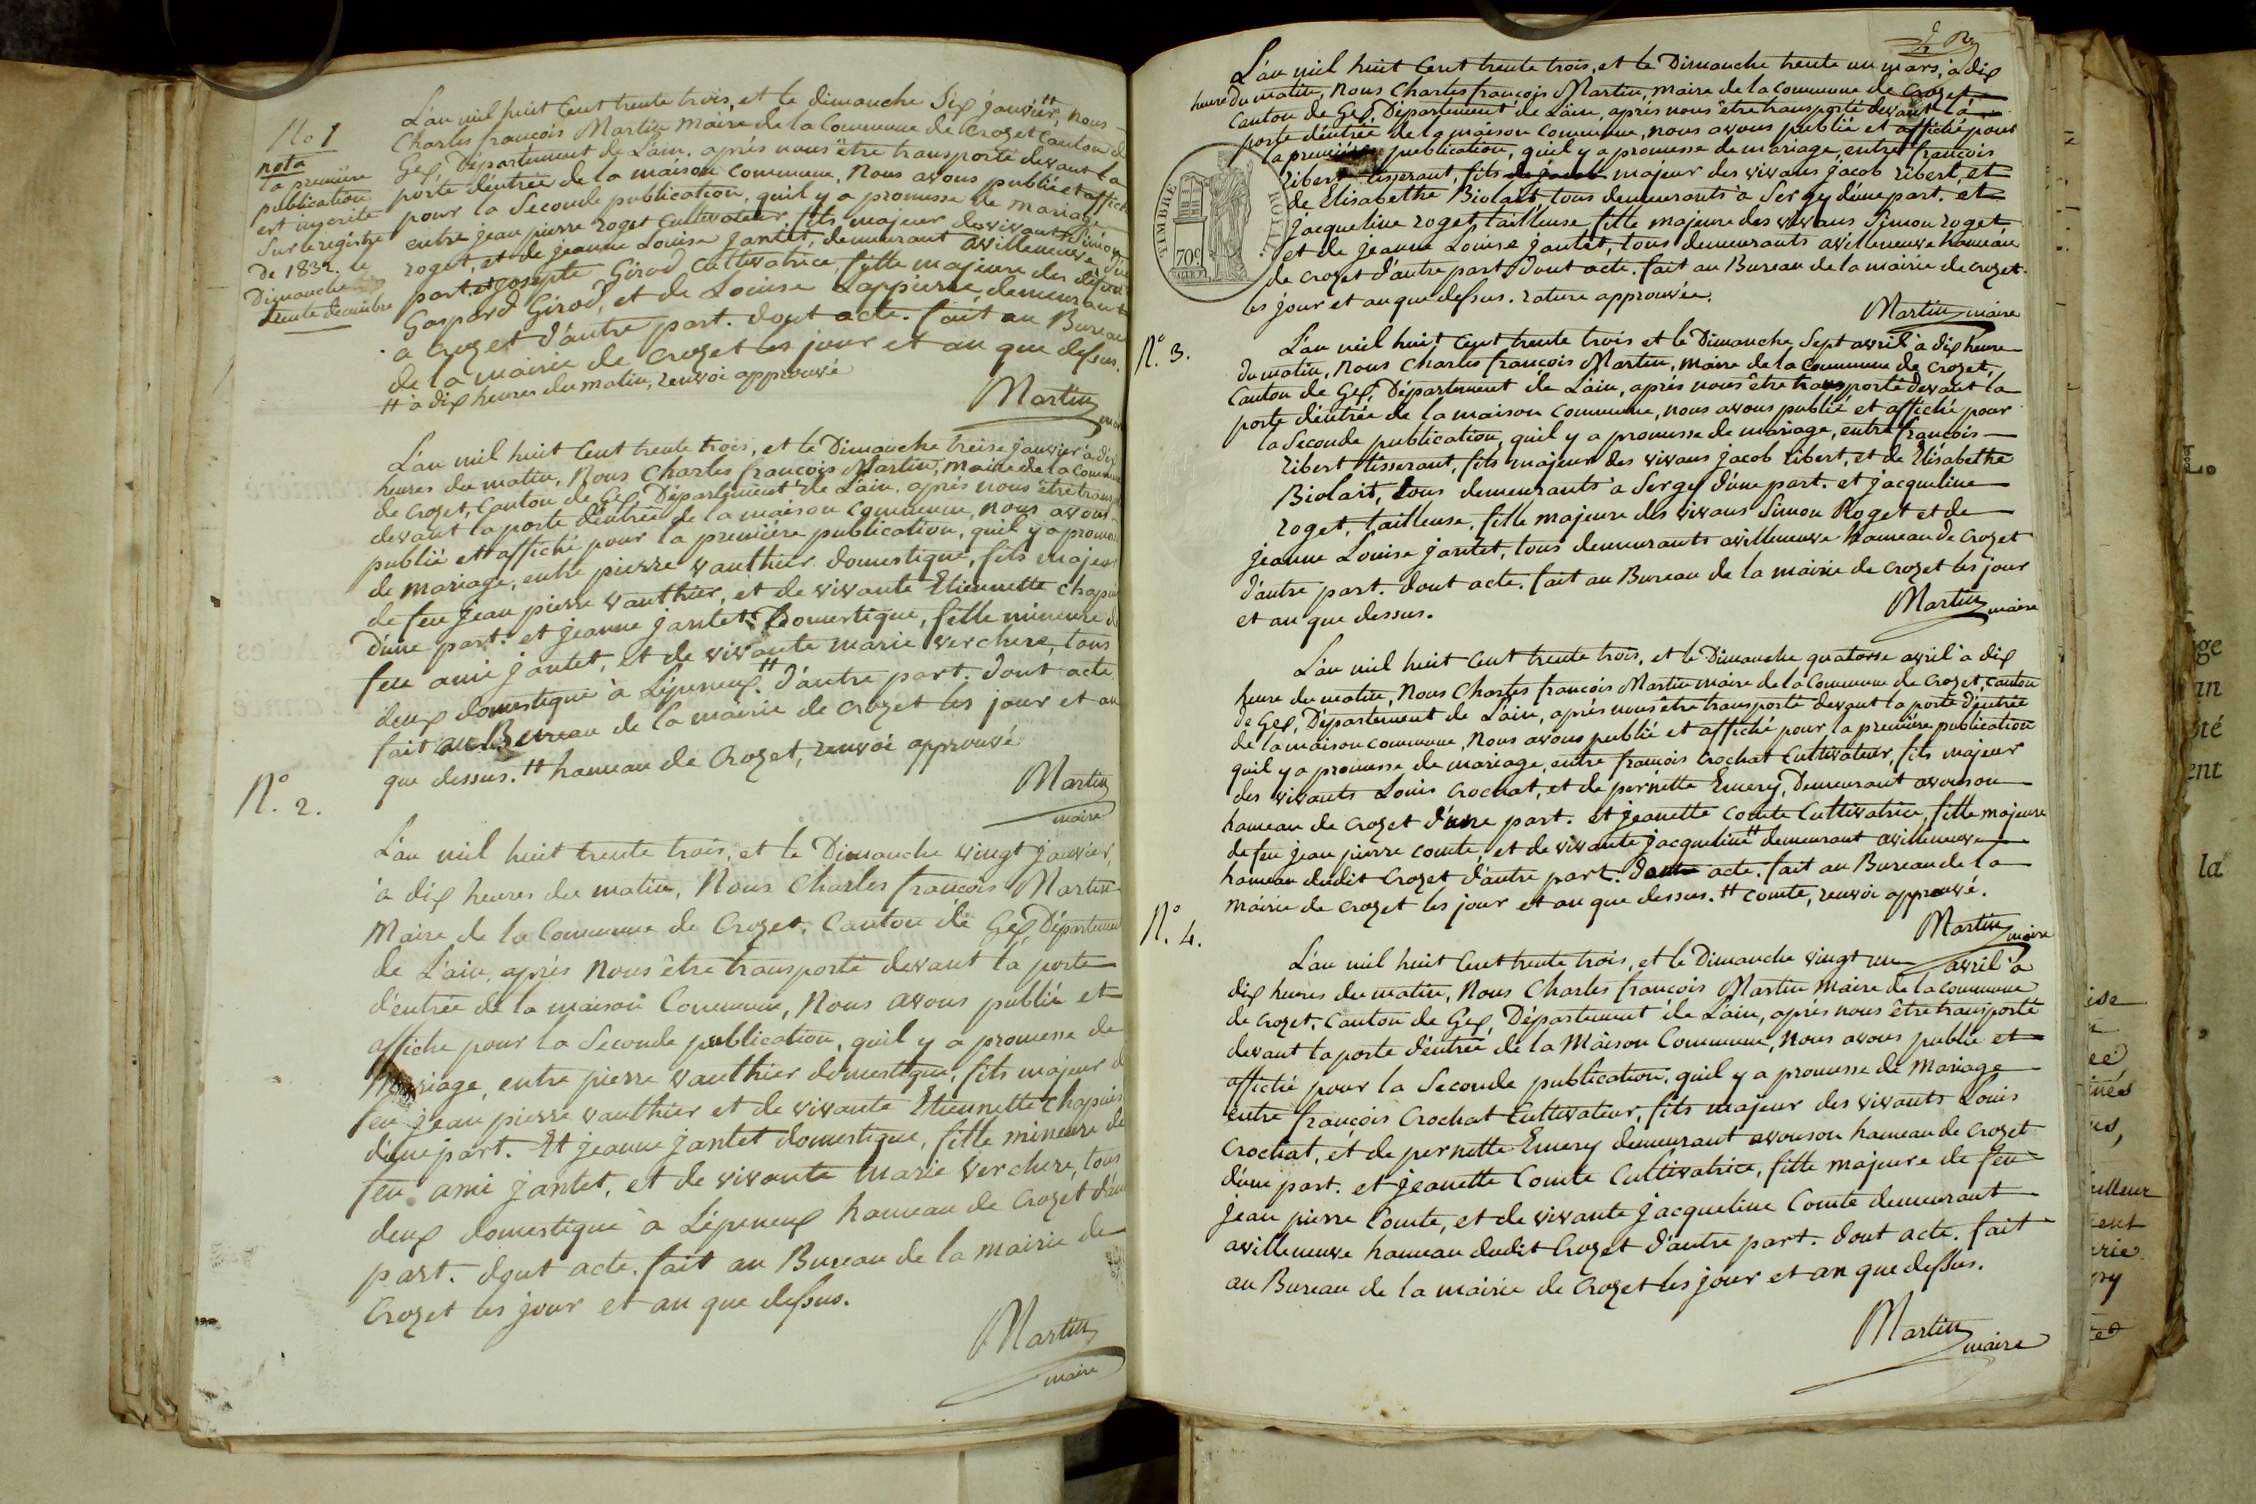 No 1
nota
la première
publication
est inscrite
Sur le registre
De 1832. le
Dimanche
trente décembre
L'an mil huit Cent trente trois, et le dimanche Six janvier, ++ nous
Charles françois Martin Maire de la Commune de Crozet Canton de
Gex, Département de L'ain. après nous être transporté devant la
porte d'entrée de la maison Commune, Nous avons publié et affiché
pour la Seconde publication, qu'il y a promesse de mariage
entre jean pierre roget Cultivateur, fils majeur des vivants Simon
roget, et de jeanne Louise jantet, demeurant avilleneuve d'une
part. et josepte Girod Cultivatrice, fille majeure des défunts
Gaspard Girod, et de Louise Lappierre demeurant
a Crozet d'autre part. dont acte. fait au Bureau
de la mairie de Crozet les jour et an que dessus.
++ à dix heures du matin, renvoi approuvé
Martin
L'an mil huit Cent trente trois, et le Dimanche treise janvier à dix
heures du matin, Nous Charles françois Martin, Maire de la Commune
de Crozet, Canton de Gex, Département de L'ain. après nous être
devant la porte d'entrée de la maison Commune, nous avons
publié et affiché pour la première publication, qu'il y a promesse
de mariage, entre pierre vauthier domestique, fils majeur
de feu jean pierre vauthier, et de vivante Etiennette Chapuis
D'une part. et jeanne jantet Domestique, fille mineure de
feu ami jantet, et de vivante marie verchere, tous
deux domestique à Lépeneux ++ d'autre part. dont acte
fait au Bureau de la mairie de crozet les jour et an
que dessus. ++ hameau de Crozet, renvoi approuvé
Martin
maire
N.° 2.
L'an mil huit trente trois, et le Dimanche vingt janvier,
à dix heures du matin, Nous Charles françois Martin
Maire de la Commune de Crozet, Canton de Gex, Département
de L'ain, après Nous être transporté devant la porte
d'entrée de la maison Commune, Nous avons publié et
affiche pour la Seconde publication, qu'il y a promesse de
Mariage, entre pierre vauthier domestique, fils majeur de
feu jean pierre vauthier et de vivante Etiennette Chapuis
d'une part. Et jeanne jantet domestique, fille mineure de
feu ami jantet, et de vivante marie verchere, tous
deux domestique à Lépeneux hameau de Crozet
part. dont acte. fait au Bureau de la mairie de
Crozet les jour et an que dessus.
Martin
maire
TIMBRE ROYAL
70c
L'an mil huit Cent trente trois, et le Dimanche trente un mars, à dix
heure Du matin, Nous Charles françois Martin, Maire de la Commune de Crozet
Canton de Gex, Département de L'ain, après nous être transporté devant la
porte d'entrée de la maison Commune, nous avons publié et affiché pour
la première publication, qu'il y a promesse de mariage, entre françois
ribert tisserant, fils de jacob majeur des vivans jacob ribert, et
de Elisabethe Biolait, tous demeurants à Sergy d'une part. et
jacqueline roget, tailleuse, fille majeure des vivans Simon roget
et de jeanne Louise jantet, tous demeurants avilleneuve hameau
de Crozet d'autre part dont acte. fait au Bureau de la mairie de crozet
les jour et an que dessus. rature approuvée.
Martin maire
N.° 3.
L'an mil huit Cent trente trois et le Dimanche Sept avril à dix heure
du matin, Nous Charles françois Martin, Maire de la Commune de Crozet,
Canton de Gex, Département de L'ain, après nous être transporté devant la
porte d'entrée de la maison Commune, nous avons publié et affiché pour
la Seconde publication, qu'il y a promesse de mariage, entre françois
ribert tisserant, fils majeur des vivans jacob ribert, et de Elisabethe
Biolait, tous demeurants à Sergy d'une part. et jacqueline
roget, tailleuse, fille majeure des vivans Simon Roget et de
jeanne Louise jantet, tous demeurants avilleneuve hameau de Crozet
d'autre part. dont acte. fait au Bureau de la mairie de Crozet les jour
et an que dessus.
Martin maire
L'an mil huit Cent trente trois, et le Dimanche quatorse avril à dix
heure du matin, Nous Charles françois Martin maire de la Commune de Crozet, canton
de Gex, Département de L'ain, après nous être transporté devant la porte d'entrée
de la maison commune, Nous avons publié et affiché pour la première publication
qu'il y a promesse de mariage, entre françois Crochat Cultivateur, fils majeur
des vivants Louis Crochat, et de pernette Emery, Demeurant avouson
hameau de Crozet d'une part. et jeanette Comte Cultivatrice, fille majeure
de feu jean pierre comte, et de vivante jacqueline ++ demeurant avilleneuve
hameau dudit Crozet d'autre part. dont acte. fait au Bureau de la
mairie de crozet les jour et an que dessus. ++ comte, renvoi approuvé.
Martin maire
N.° 4.
L'an mil huit Cent trente trois, et le Dimanche vingt un avril à
dix heures du matin, Nous Charles françois Martin Maire de la commune
de Crozet, Canton de Gex, Département de L'ain, après nous être transporté
devant la porte d'entrée de la Maison Commune, Nous avons publié et
affiché pour la Seconde publication, qu'il y a promesse de Mariage
entre françois Crochat Cultivateur, fils majeur des vivants Louis
Crochat, et de pernette Emery demeurant avouson hameau de Crozet
d'une part. et jeanette Comte Cultivatrice, fille majeure de feu
jean pierre Comte, et de vivante jacqueline Comte demeurant
avilleneuve hameau dudit Crozet d'autre part. dont acte. fait
au Bureau de la mairie de Crozet les jour et an que dessus.
Martin maire